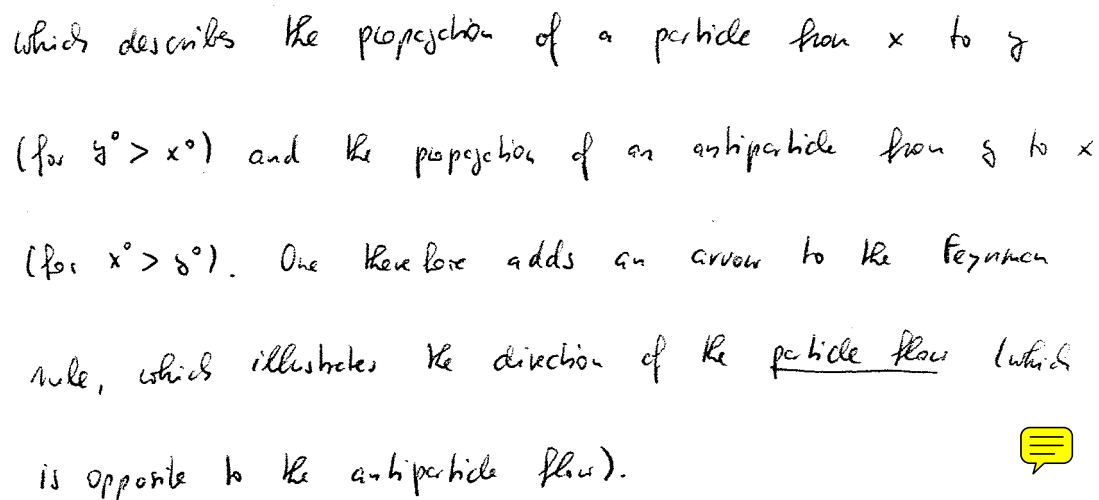 which describes the propagation of a particle from x to y
(for y⁰ > x⁰) and the propagation of an antiparticle from y to x
(for x⁰ > y⁰). One therefore adds an arrow to the Feynman
rule, which illustrates the direction of the particle flow (which
is opposite to the antiparticle flow).